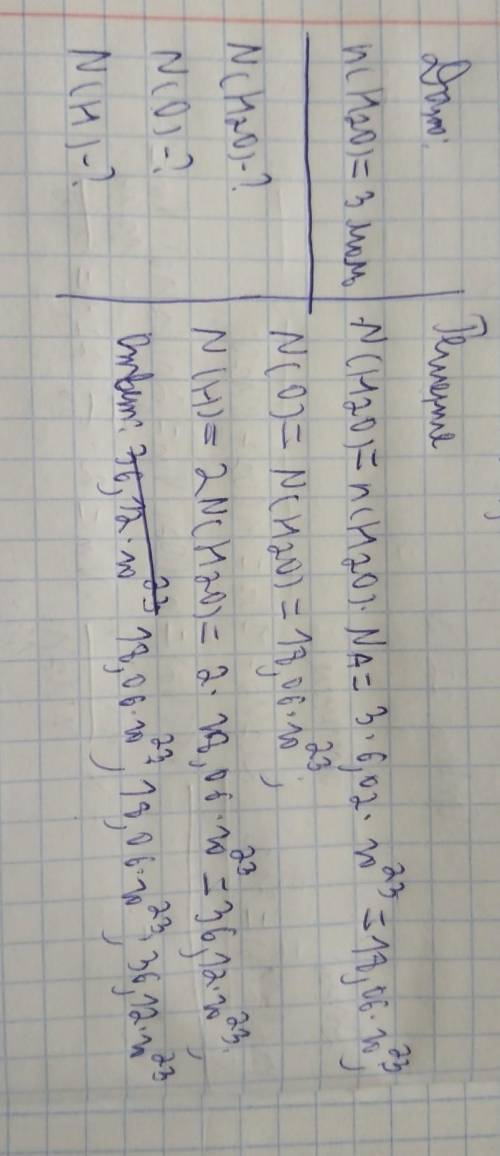 Дано:
n(H2O) = 3 моль
N(H2O)-?
N(O)-?
N(H)-?
Решение
N(H2O) = n(H2O) · NA = 3 · 6,02 · 10^23 = 18,06 · 10^23,
N(O) = N(H2O) = 18,06 · 10^23,
N(H) = 2N(H2O) = 2 · 18,06 · 10^23 = 36,12 · 10^23.
Ответ: 36,12 · 10^23 18,06 · 10^23, 18,06 · 10^23, 36,12 · 10^23